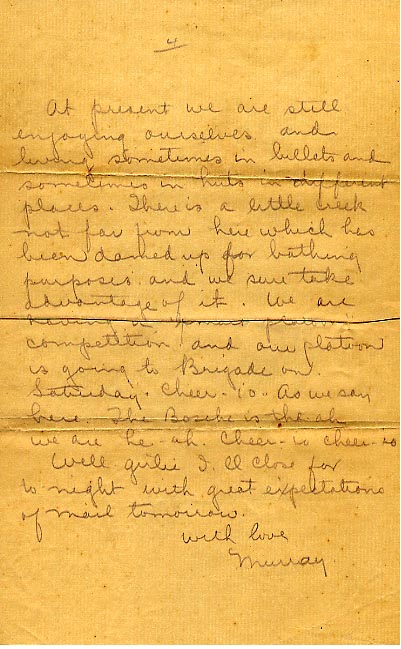 4
At present we are still
enjoying ourselves and
living sometimes in billets and
sometimes in huts in different
places. There is a little creek
not far from here which has
been damed up for bathing
purposes and we sure take
advantage of it. We are
having a smart platoon
competition and our platoon
is going to Brigade on
Saturday. Cheer-io. As we say
here. The Bosche is the ah
we are he-ah. Cheer-io cheer-io
Well girlie I'll close for
to-night with great expectations
of mail tomorrow.
with love
Murray